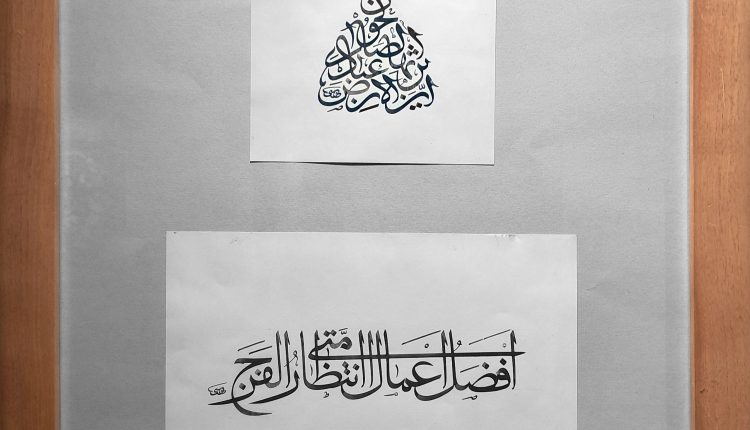 ان الارض يرثها عبادي الصالحون
افضل اعمال امّتی انتظار الفرج